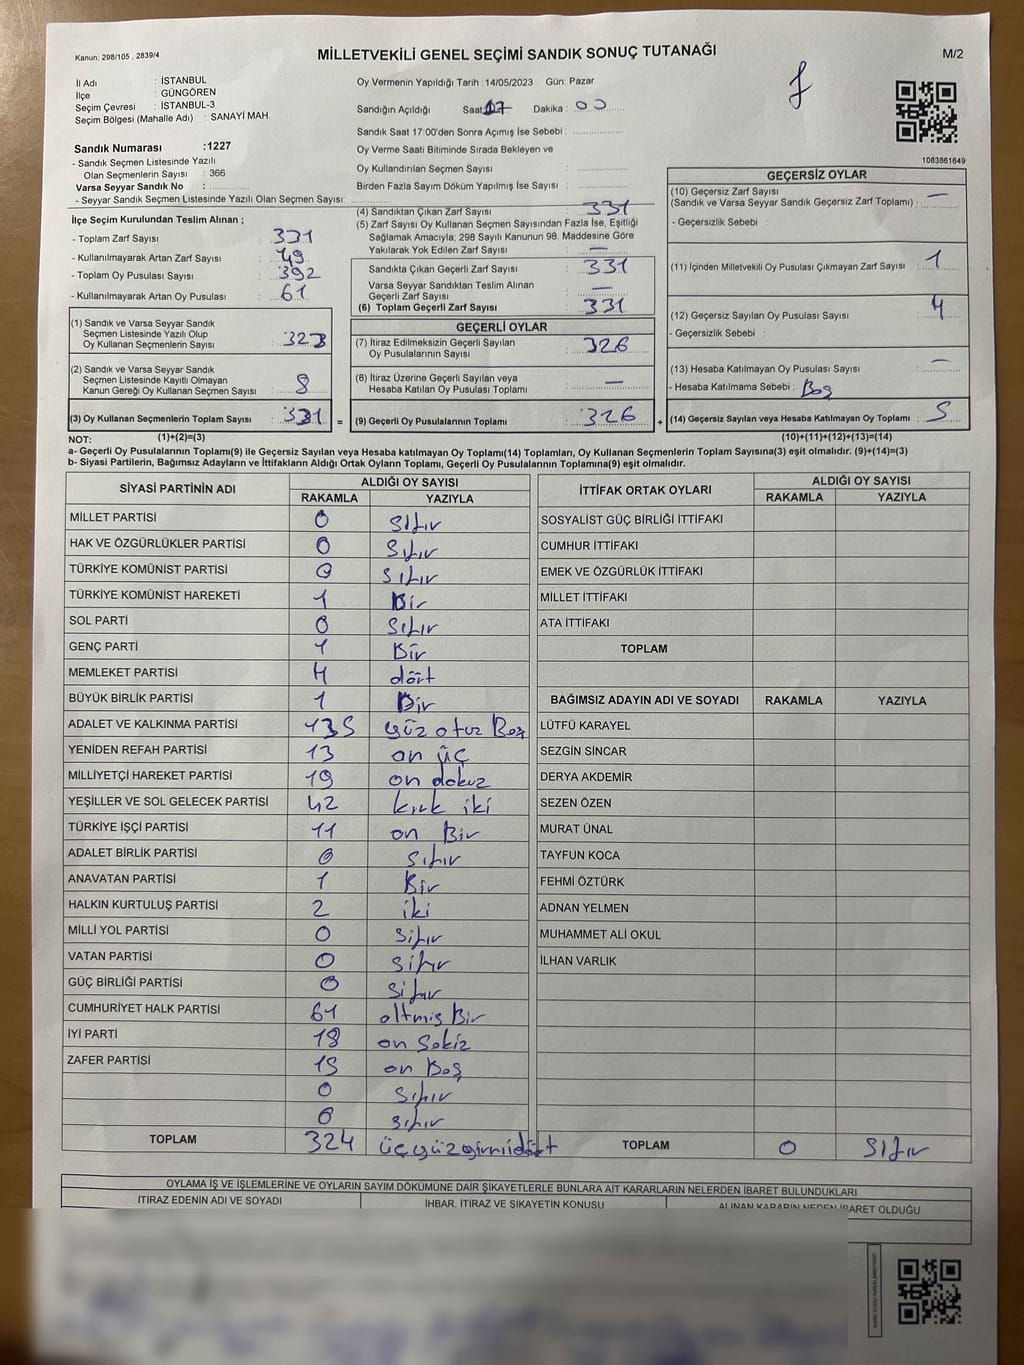 Kanun: 298/105 , 2839/4
MİLLETVEKİLİ GENEL SEÇİMİ SANDIK SONUÇ TUTANAĞI
M/2
İl Adı : İSTANBUL
İlçe : GÜNGÖREN
Seçim Çevresi : İSTANBUL-3
Seçim Bölgesi (Mahalle Adı) : SANAYİ MAH.
Sandık Numarası :1227
- Sandık Seçmen Listesinde Yazılı
Olan Seçmenlerin Sayısı : 366
Varsa Seyyar Sandık No :
- Seyyar Sandık Seçmen Listesinde Yazılı Olan Seçmen Sayısı:
Oy Vermenin Yapıldığı Tarih : 14/05/2023 Gün: Pazar
Sandığın Açıldığı Saat 17 Dakika : 00
Sandık Saat 17:00'den Sonra Açımış İse Sebebi :
Oy Verme Saati Bitiminde Sırada Bekleyen ve
Oy Kullandırılan Seçmen Sayısı :
Birden Fazla Sayım Döküm Yapılmış İse Sayısı :
1083861649
İlçe Seçim Kurulundan Teslim Alınan ;
- Toplam Zarf Sayısı : 331
- Kullanılmayarak Artan Zarf Sayısı : 49
- Toplam Oy Pusulası Sayısı : 392
- Kullanılmayarak Artan Oy Pusulası : 61
(1) Sandık ve Varsa Seyyar Sandık
Seçmen Listesinde Yazılı Olup
Oy Kullanan Seçmenlerin Sayısı : 323
(2) Sandık ve Varsa Seyyar Sandık
Seçmen Listesinde Kayıtlı Olmayan
Kanun Gereği Oy Kullanan Seçmen Sayısı : 8
(3) Oy Kullanan Seçmenlerin Toplam Sayısı : 331 =
(1)+(2)=(3)
(4) Sandıktan Çıkan Zarf Sayısı : 331
(5) Zarf Sayısı Oy Kullanan Seçmen Sayısından Fazla İse, Eşitliği
Sağlamak Amacıyla; 298 Sayılı Kanunun 98. Maddesine Göre
Yakılarak Yok Edilen Zarf Sayısı : —
Sandıkta Çıkan Geçerli Zarf Sayısı : 331
Varsa Seyyar Sandıktan Teslim Alınan
Geçerli Zarf Sayısı : —
(6) Toplam Geçerli Zarf Sayısı : 331
GEÇERLİ OYLAR
(7) İtiraz Edilmeksizin Geçerli Sayılan
Oy Pusulalarının Sayısı : 326
(8) İtiraz Üzerine Geçerli Sayılan veya
Hesaba Katılan Oy Pusulası Toplamı : —
(9) Geçerli Oy Pusulalarının Toplamı : 326 +
GEÇERSİZ OYLAR
(10) Geçersiz Zarf Sayısı
(Sandık ve Varsa Seyyar Sandık Geçersiz Zarf Toplamı) : —
- Geçersizlik Sebebi :
(11) İçinden Milletvekili Oy Pusulası Çıkmayan Zarf Sayısı : 1
(12) Geçersiz Sayılan Oy Pusulası Sayısı : 4
- Geçersizlik Sebebi :
(13) Hesaba Katılmayan Oy Pusulası Sayısı : —
- Hesaba Katılmama Sebebi : Boş
(14) Geçersiz Sayılan veya Hesaba Katılmayan Oy Toplamı : 5
(10)+(11)+(12)+(13)=(14)
NOT:
a- Geçerli Oy Pusulalarının Toplamı(9) ile Geçersiz Sayılan veya Hesaba katılmayan Oy Toplamı(14) Toplamları, Oy Kullanan Seçmenlerin Toplam Sayısına(3) eşit olmalıdır. (9)+(14)=(3)
b- Siyasi Partilerin, Bağımsız Adayların ve İttifakların Aldığı Ortak Oyların Toplamı, Geçerli Oy Pusulalarının Toplamına(9) eşit olmalıdır.
SİYASİ PARTİNİN ADI ALDIĞI OY SAYISI
RAKAMLA YAZIYLA
MİLLET PARTİSİ 0 sıfır
HAK VE ÖZGÜRLÜKLER PARTİSİ 0 sıfır
TÜRKİYE KOMÜNİST PARTİSİ 0 sıfır
TÜRKİYE KOMÜNİST HAREKETİ 1 Bir
SOL PARTİ 0 sıfır
GENÇ PARTİ 1 Bir
MEMLEKET PARTİSİ 4 dört
BÜYÜK BİRLİK PARTİSİ 1 Bir
ADALET VE KALKINMA PARTİSİ 135 yüz otuz Beş
YENİDEN REFAH PARTİSİ 13 on üç
MİLLİYETÇİ HAREKET PARTİSİ 19 on dokuz
YEŞİLLER VE SOL GELECEK PARTİSİ 42 kırk iki
TÜRKİYE İŞÇİ PARTİSİ 11 on Bir
ADALET BİRLİK PARTİSİ 0 sıfır
ANAVATAN PARTİSİ 1 Bir
HALKIN KURTULUŞ PARTİSİ 2 iki
MİLLİ YOL PARTİSİ 0 sıfır
VATAN PARTİSİ 0 sıfır
GÜÇ BİRLİĞİ PARTİSİ 0 sıfır
CUMHURİYET HALK PARTİSİ 61 altmış Bir
İYİ PARTİ 18 on Sekiz
ZAFER PARTİSİ 15 on Beş
0 sıfır
0 sıfır
TOPLAM 324 üçyüzyirmidört
İTTİFAK ORTAK OYLARI ALDIĞI OY SAYISI
RAKAMLA YAZIYLA
SOSYALİST GÜÇ BİRLİĞİ İTTİFAKI
CUMHUR İTTİFAKI
EMEK VE ÖZGÜRLÜK İTTİFAKI
MİLLET İTTİFAKI
ATA İTTİFAKI
TOPLAM
BAĞIMSIZ ADAYIN ADI VE SOYADI RAKAMLA YAZIYLA
LÜTFÜ KARAYEL
SEZGİN SİNCAR
DERYA AKDEMİR
SEZEN ÖZEN
MURAT ÜNAL
TAYFUN KOCA
FEHMİ ÖZTÜRK
ADNAN YELMEN
MUHAMMET ALİ OKUL
İLHAN VARLIK
TOPLAM 0 Sıfır
OYLAMA İŞ VE İŞLEMLERİNE VE OYLARIN SAYIM DÖKÜMÜNE DAİR ŞİKAYETLERLE BUNLARA AİT KARARLARIN NELERDEN İBARET BULUNDUKLARI
İTİRAZ EDENİN ADI VE SOYADI
İHBAR, İTİRAZ VE ŞİKAYETİN KONUSU
ALINAN KARARIN NEDEN İBARET OLDUĞU